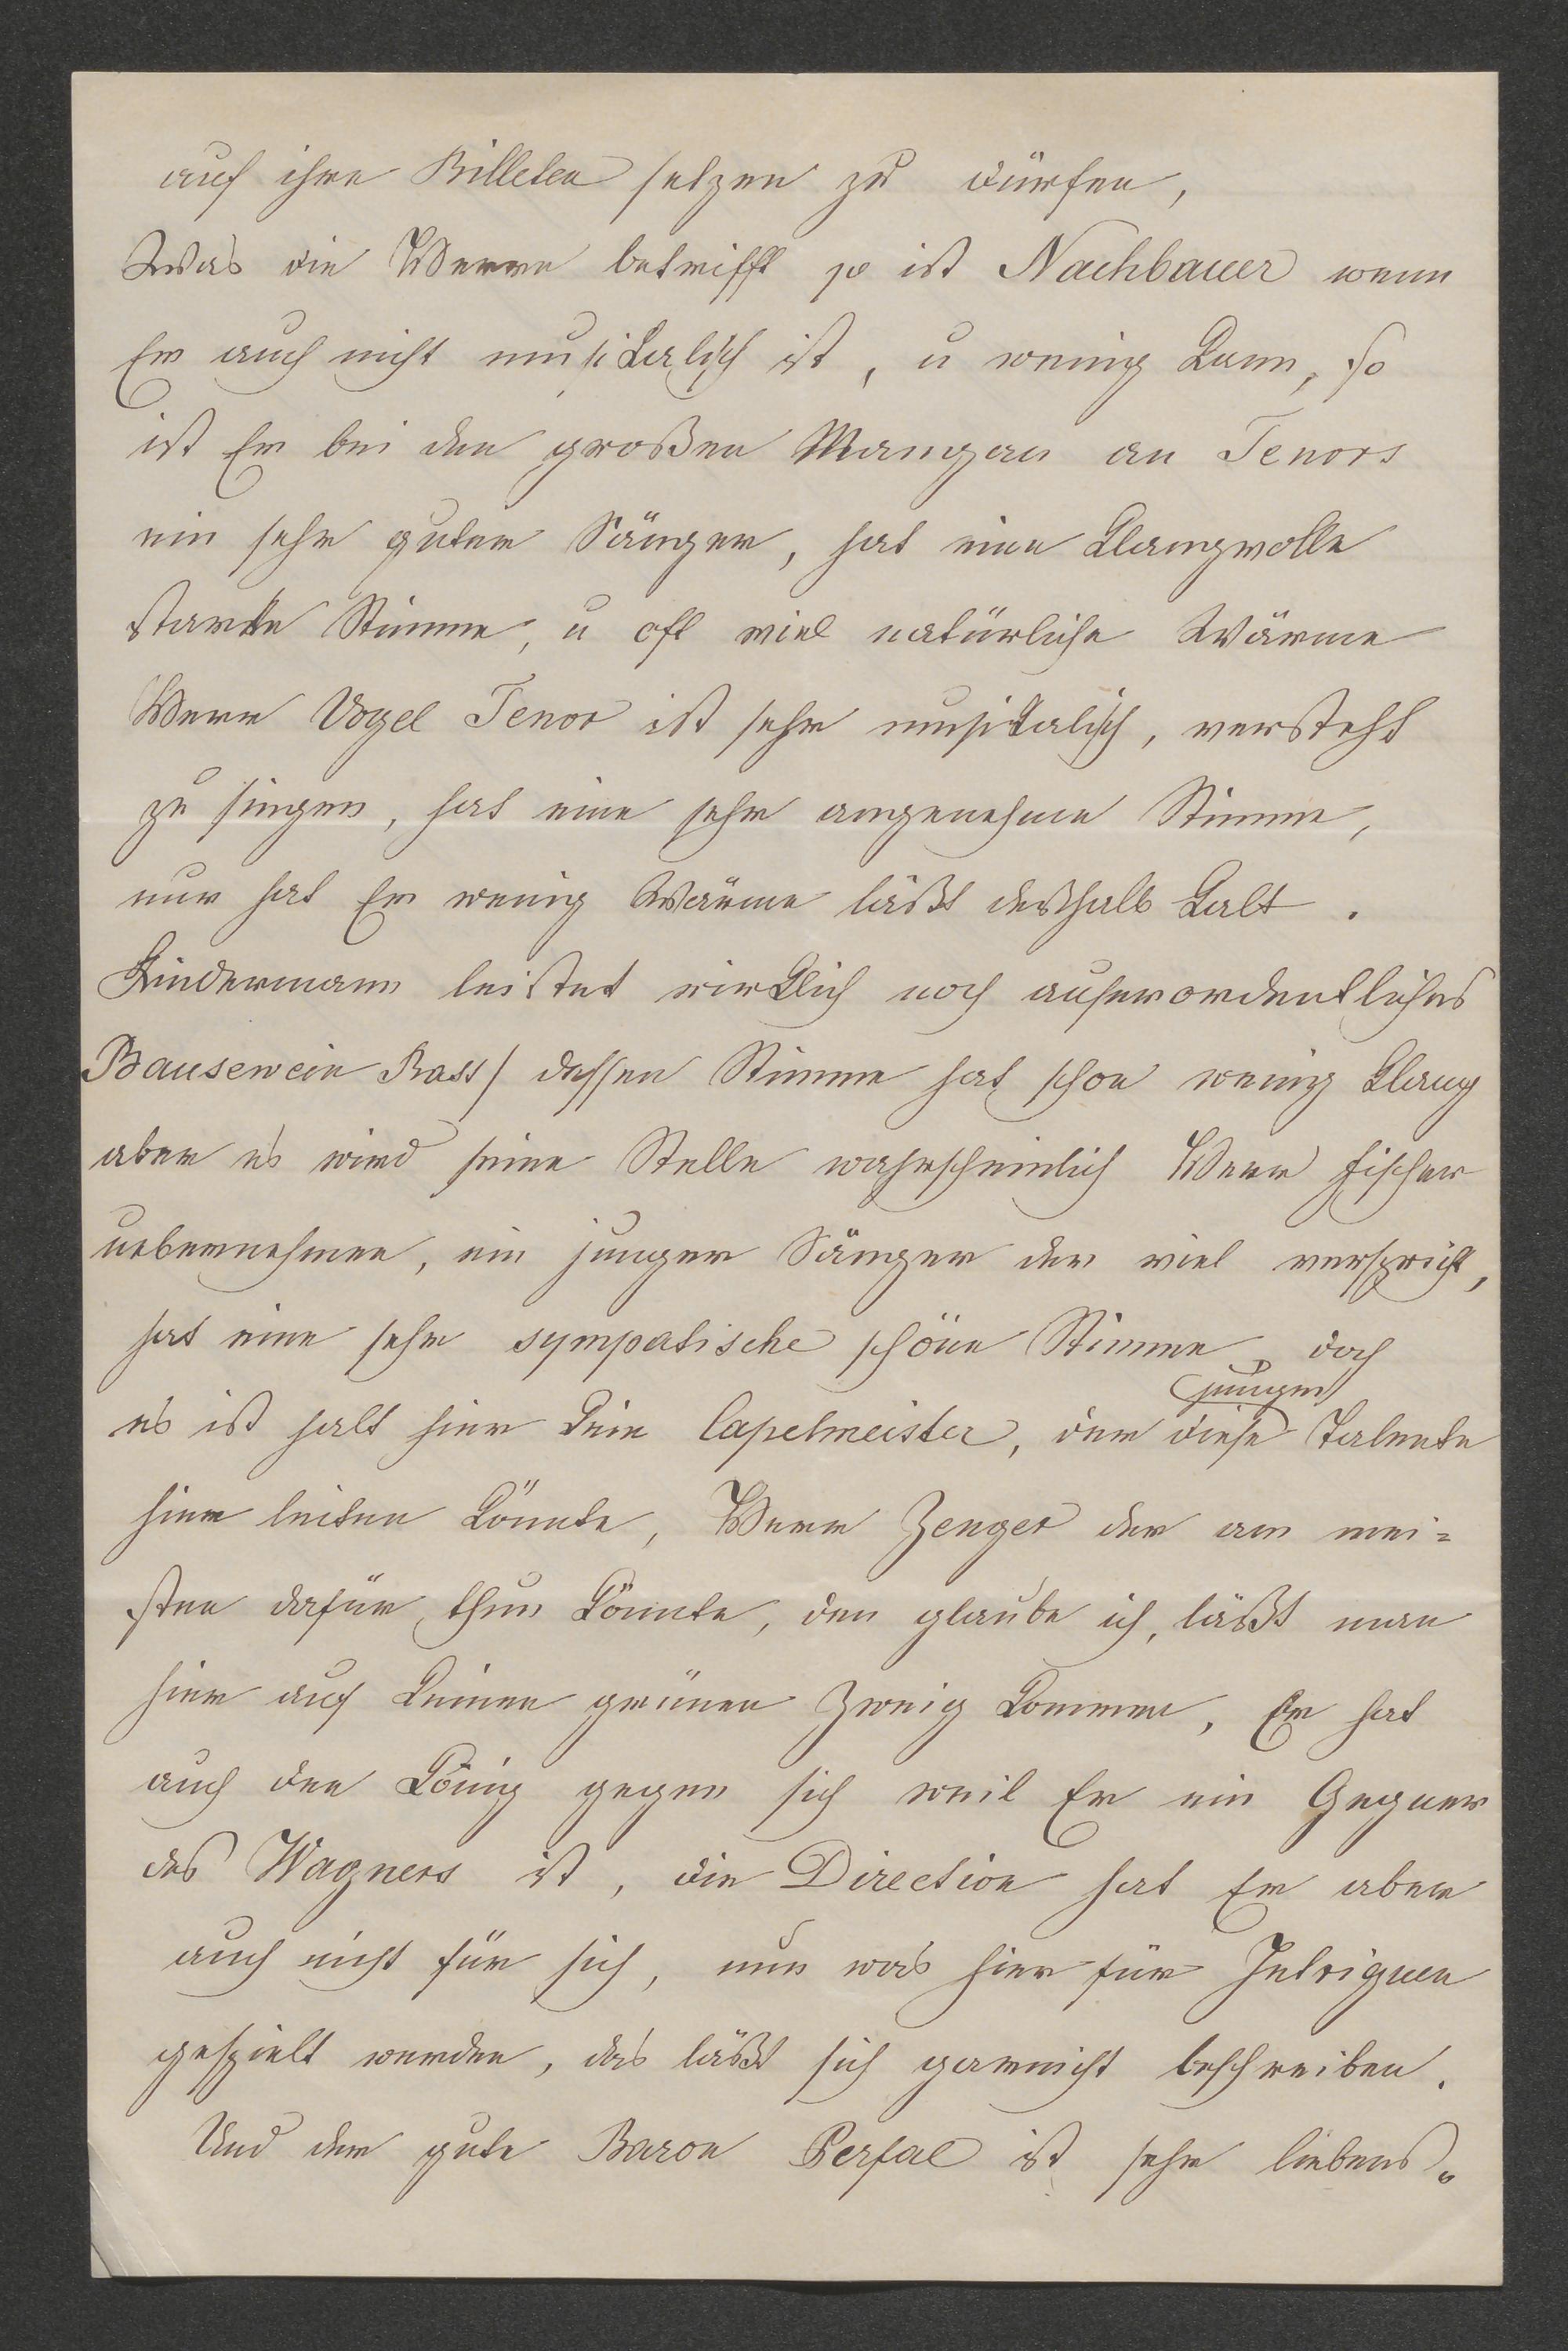 auf ihre Billeten setzen zu dürfen,
Was die Herrn betrifft so ist Nachbauer wenn
Er auch nicht musikalisch ist, u wenig kann, so
ist Er bei den großen Mangan an Tenors
ein sehr guter Sänger, hat eine klangvolle
starke Stimme, u oft viel natürliche Wärme
Herr Vogel Tenor ist sehr musikalisch, versteht
zu singen, hat eine sehr angenehme Stimme,
nur hat Er wenig Wärme läßt deßhalb kalt.
Kindermann leistet wirklich noch auserordentliches
Bausewein Bass/ dessen Stimme hat schon wenig Klang
aber es wird seine Stelle wahrscheinlich Herr Fischer
uebernehmen, ein junger Sänger der viel verspricht,
hat eine sehr sympatische schöne Stimme, doch
jungen
es ist halt hier kein Capelmeister, der diese Talente
hier leiten könnte, Herr Zenger der am mei=
sten dafür thun könnte, den glaube ich, läßt man
hier auf keinen grünen Zweig kommen, Er hat
auch den König gegen sich weil Er ein Gegner
des Wagners ist, die Direction hat Er aber
auch nicht für sich, nun was hier für Intriguen
gespielt werden, das läßt sich garnicht beschreiben.
Und der gute Baron Perfal ist sehr liebens=